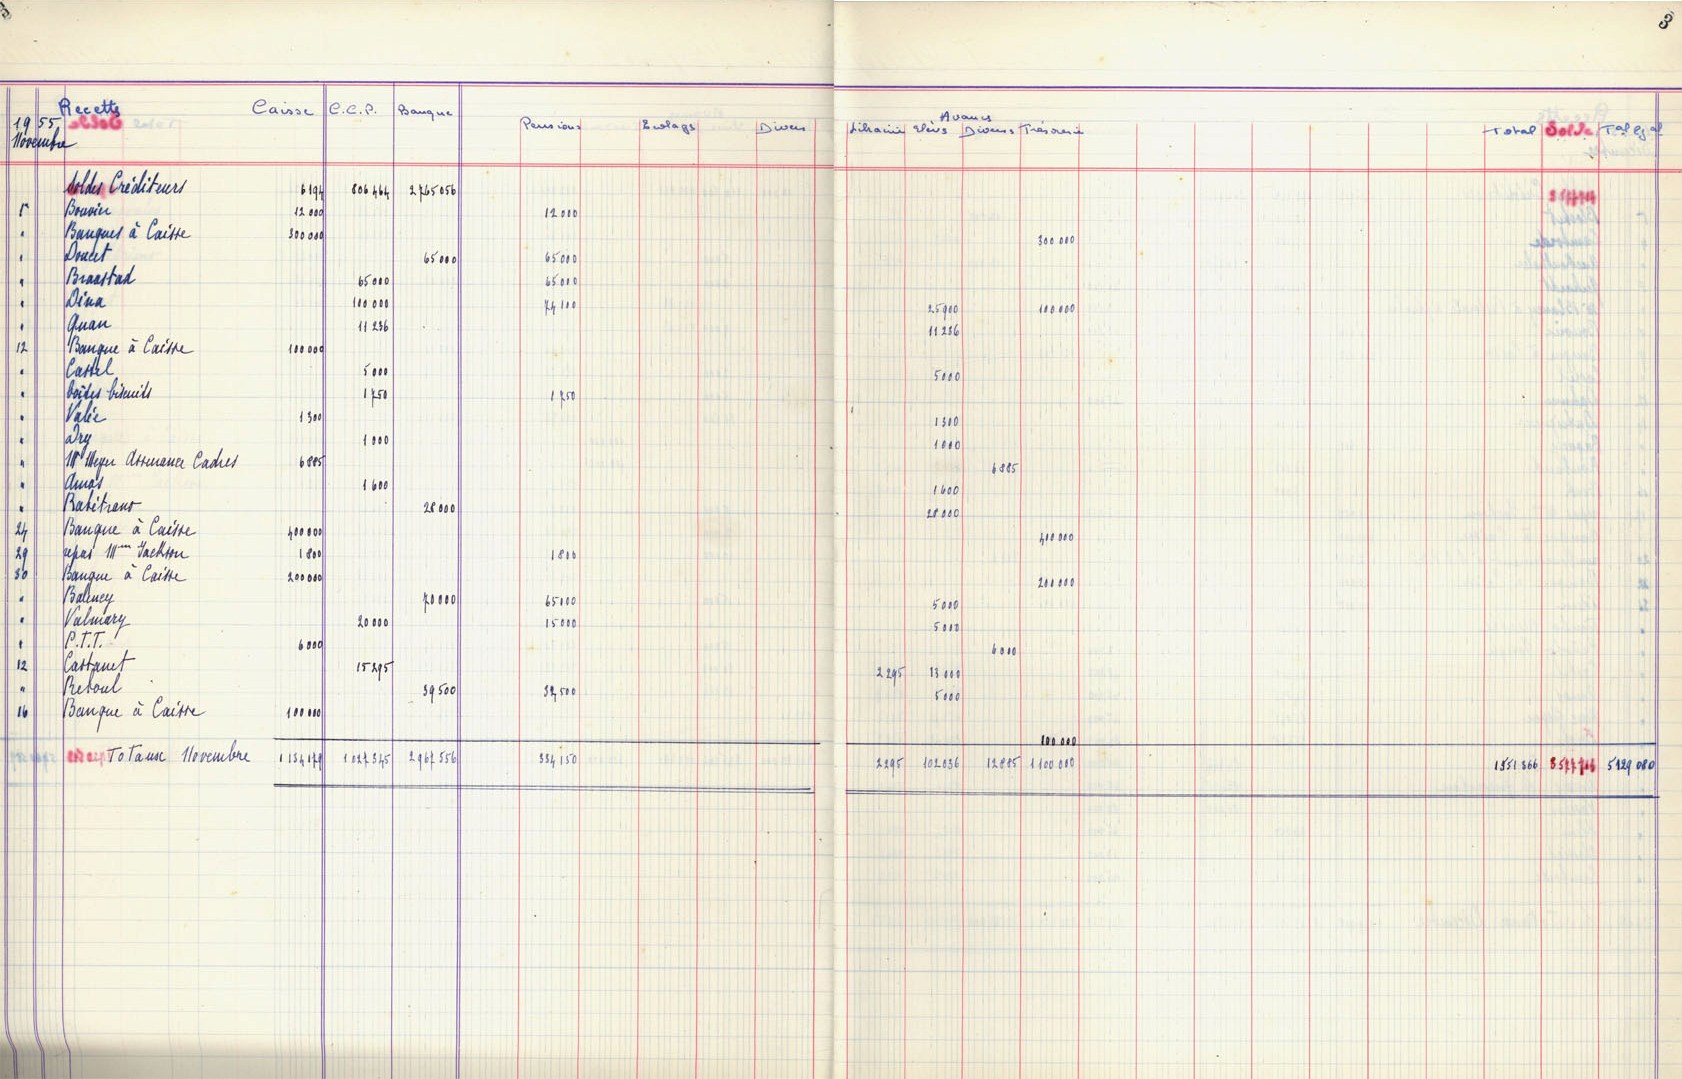 3
Recettes Caisse C.C.P. Banque Avances
1955 Pensions Ecolages Divers Librairie Elèves Divers Trésorerie Total Solde Total Egal
Novembre
Soldes Créditeurs 6194 806 464 2 765 056
5 Bouvin 12 000 12 000
" Banques à Caisse 300 000 300 000
" Doucet 65 000 65 000
" Braastad 65 000 65 000
" Dina 100 000 74 100 25 900 100 000
" Quan 11 236 11 236
12 Banque à Caisse 100 000
" Castel 5 000 5000
" boîtes biscuits 1 750 1 750
" Valée 1 300 1300
" Dry 1 000 1000
" Mr Meyer Assurance Cadres 6 885 6 885
" Amos 1 600 1 600
" Rabétrano 28 000 28 000
24 Banque à Caisse 400 000 400 000
29 repas Mme Jackson 1 800 1 800
30 Banque à Caisse 200 000 200 000
" Balmey 70 000 65 000 5 000
" Valmary 20 000 15 000 5 000
" P.T.T. 6 000 6 000
12 Castanet 15 295 2 295 13 000
" Reboul 39 500 34 500 5 000
16 Banque à Caisse 100 000
100 000
Totaux Novembre 1 134 179 1 027 345 2 967 556 334 150 2295 102 036 12 885 1 100 000 1 551 366 5 129 080